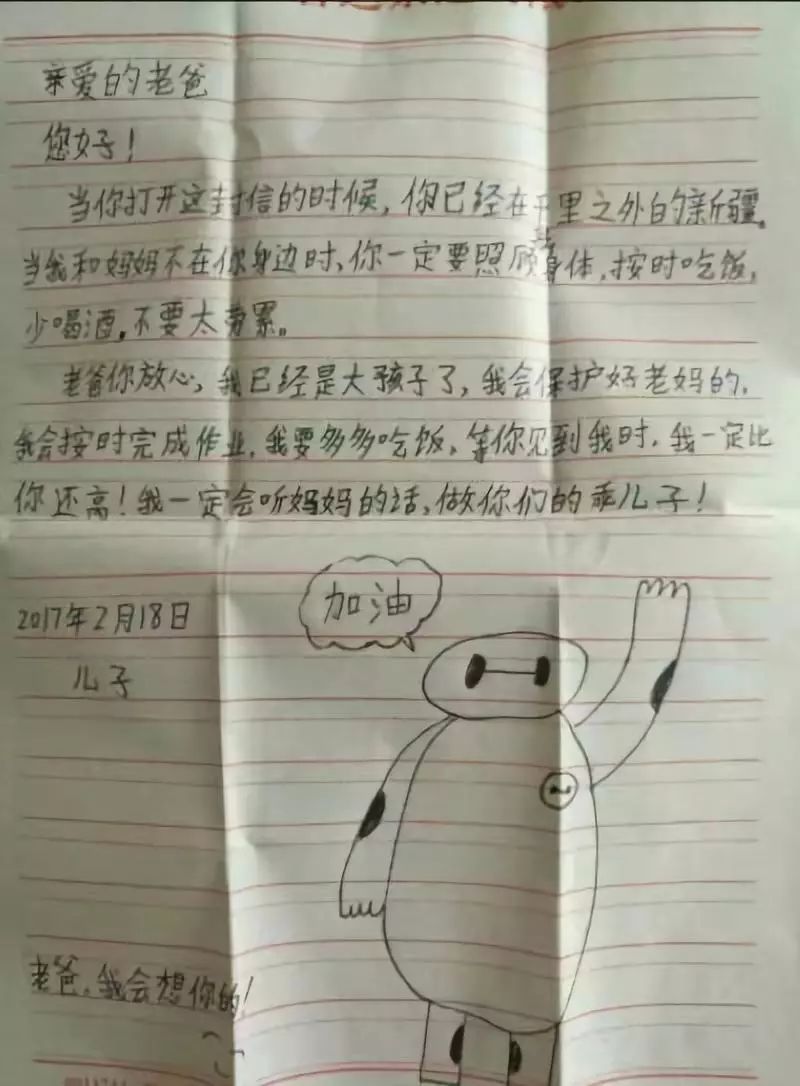 亲爱的老爸
您好！
当你打开这封信的时候，你已经在千里之外的新疆。
当我和妈妈不在你身边时、你一定要照顾身体，按时吃饭，
少喝酒，不要太劳累。
老爸你放心，我已经是大孩子了，我会保护好老妈的，
我会按时完成作业，我要多多吃饭，等你见到我时，我一定比
你还高！我一定会听妈妈的话，做你们的乖儿子！
加油
2017年2月18日
儿子
老爸，我会想你的！